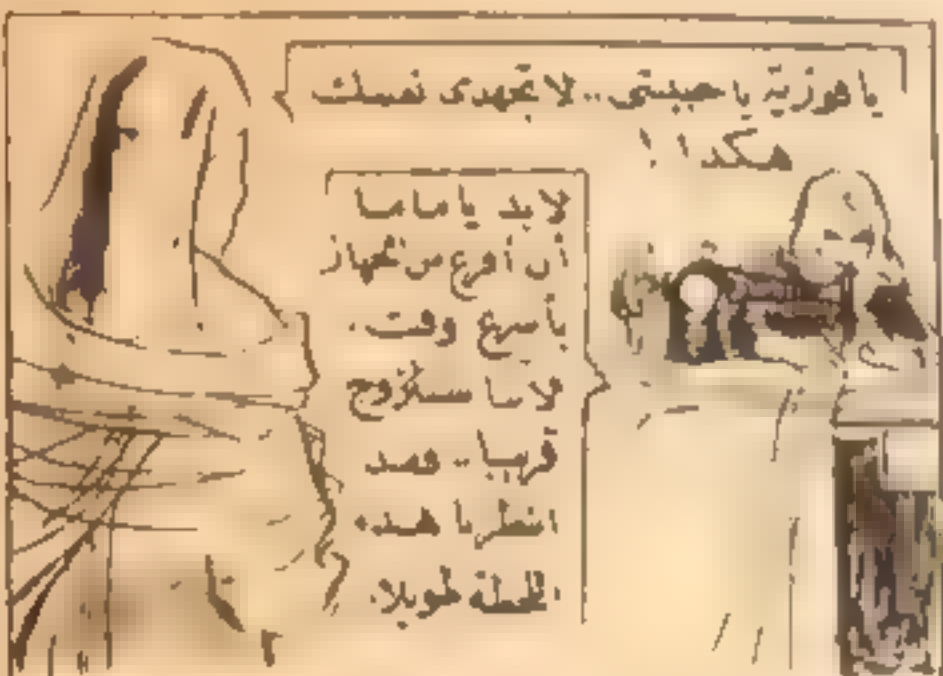 يا فوزية يا حبيبتى .. لا تجهدى نفسك
هكذا !
لا بد يا ماما
أن أفرغ من الجهاز
بأسرع وقت .
لأننا سنتزوج
قريبا .. فقد
انتظرنا هذه
اللحظة طويلا .